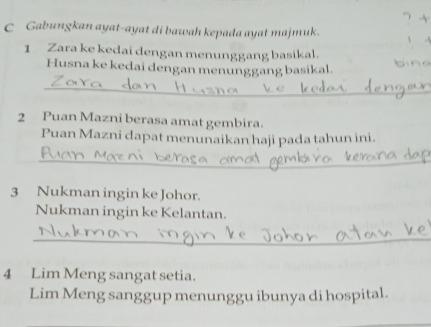 C Gabungkan ayat-ayat di bawah kepada ayat majmuk.
1 Zara ke kedai dengan menunggang basikal.
Husna ke kedai dengan menunggang basikal.
Zara dan Husna ke kedai dengan
2 Puan Mazni berasa amat gembira.
Puan Mazni dapat menunaikan haji pada tahun ini.
Puan Mazni berasa amat gembira kerana dap
3 Nukman ingin ke Johor.
Nukman ingin ke Kelantan.
Nukman ingin ke Johor atau ke
4 Lim Meng sangat setia.
Lim Meng sanggup menunggu ibunya di hospital.